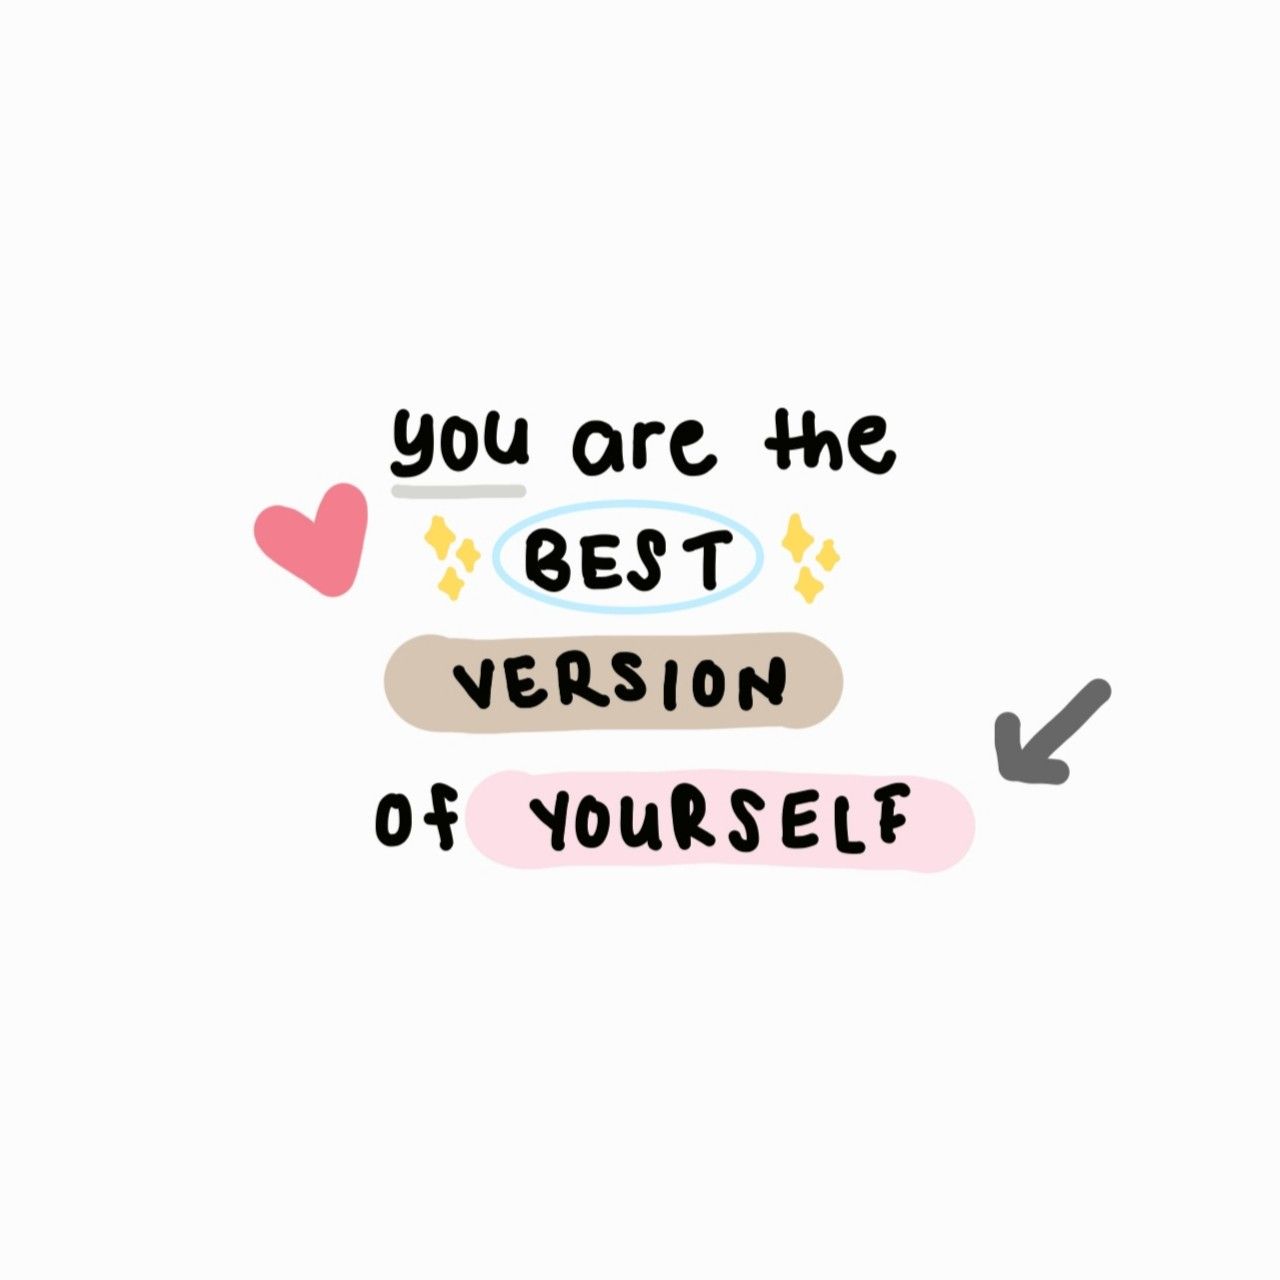 you are the
BEST
VERSION
of YOURSELF